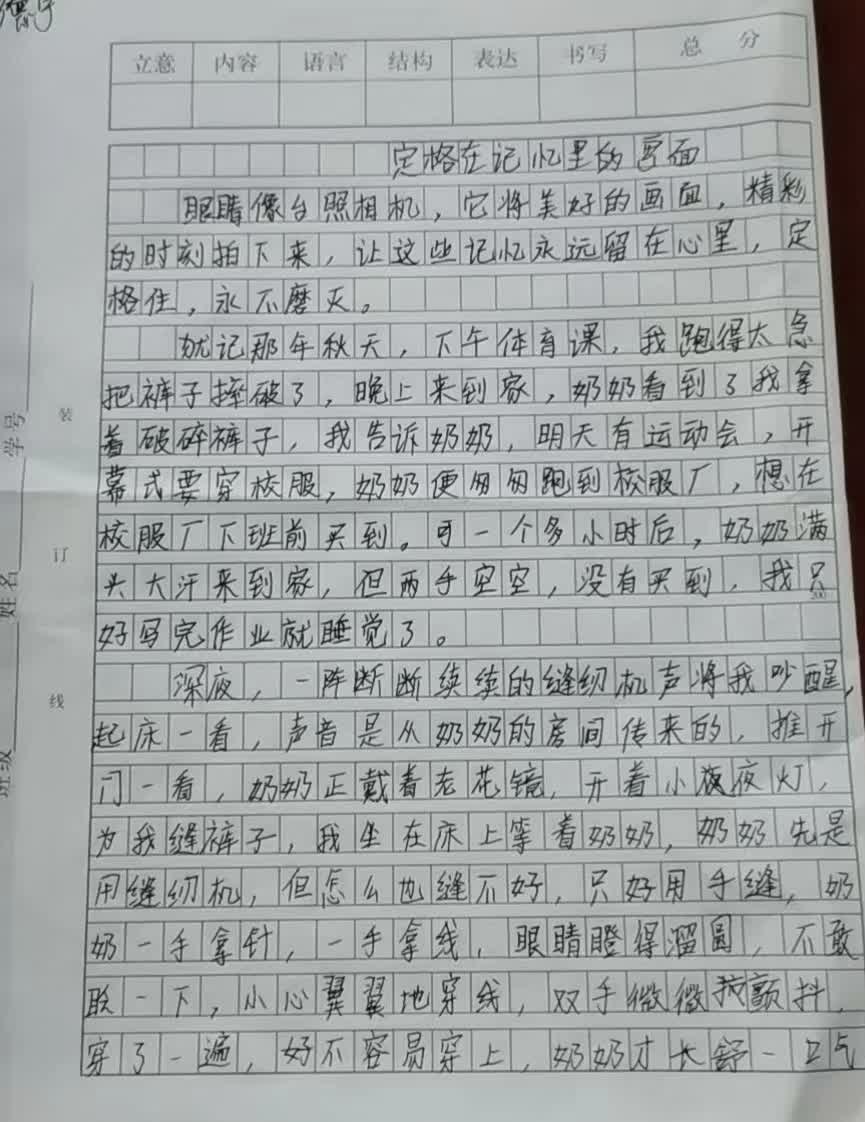 立意 内容 语言 结构 表达 书写 总分
定格在记忆里的画面
眼睛像台照相机，它将美好的画面，精彩
的时刻拍下来，让这些记忆永远留在心里，定
格住，永不磨灭。
就记那年秋天，下午体育课，我跑得太急
把裤子摔破了，晚上来到家，奶奶看到了我拿
着破碎裤子，我告诉奶奶，明天有运动会，开
幕式要穿校服，奶奶便匆匆跑到校服厂，想在
校服厂下班前买到。可一个多小时后，奶奶满
头大汗来到家，但两手空空，没有买到，我只
200
好写完作业就睡觉了。
深夜，一阵断断续续的缝纫机声将我吵醒，
起床一看，声音是从奶奶的房间传来的，推开
门一看，奶奶正戴着老花镜，开着小夜夜灯，
为我缝裤子，我坐在床上等着奶奶，奶奶先是
用缝纫机，但怎么也缝不好，只好用手缝，奶
奶一手拿针，一手拿线，眼睛瞪得溜圆，不敢
眨一下，小心翼翼地穿线，双手微微颤抖，
穿了一遍，好不容易穿上，奶奶才长舒一口气
学号
姓名
班级
装
订
线